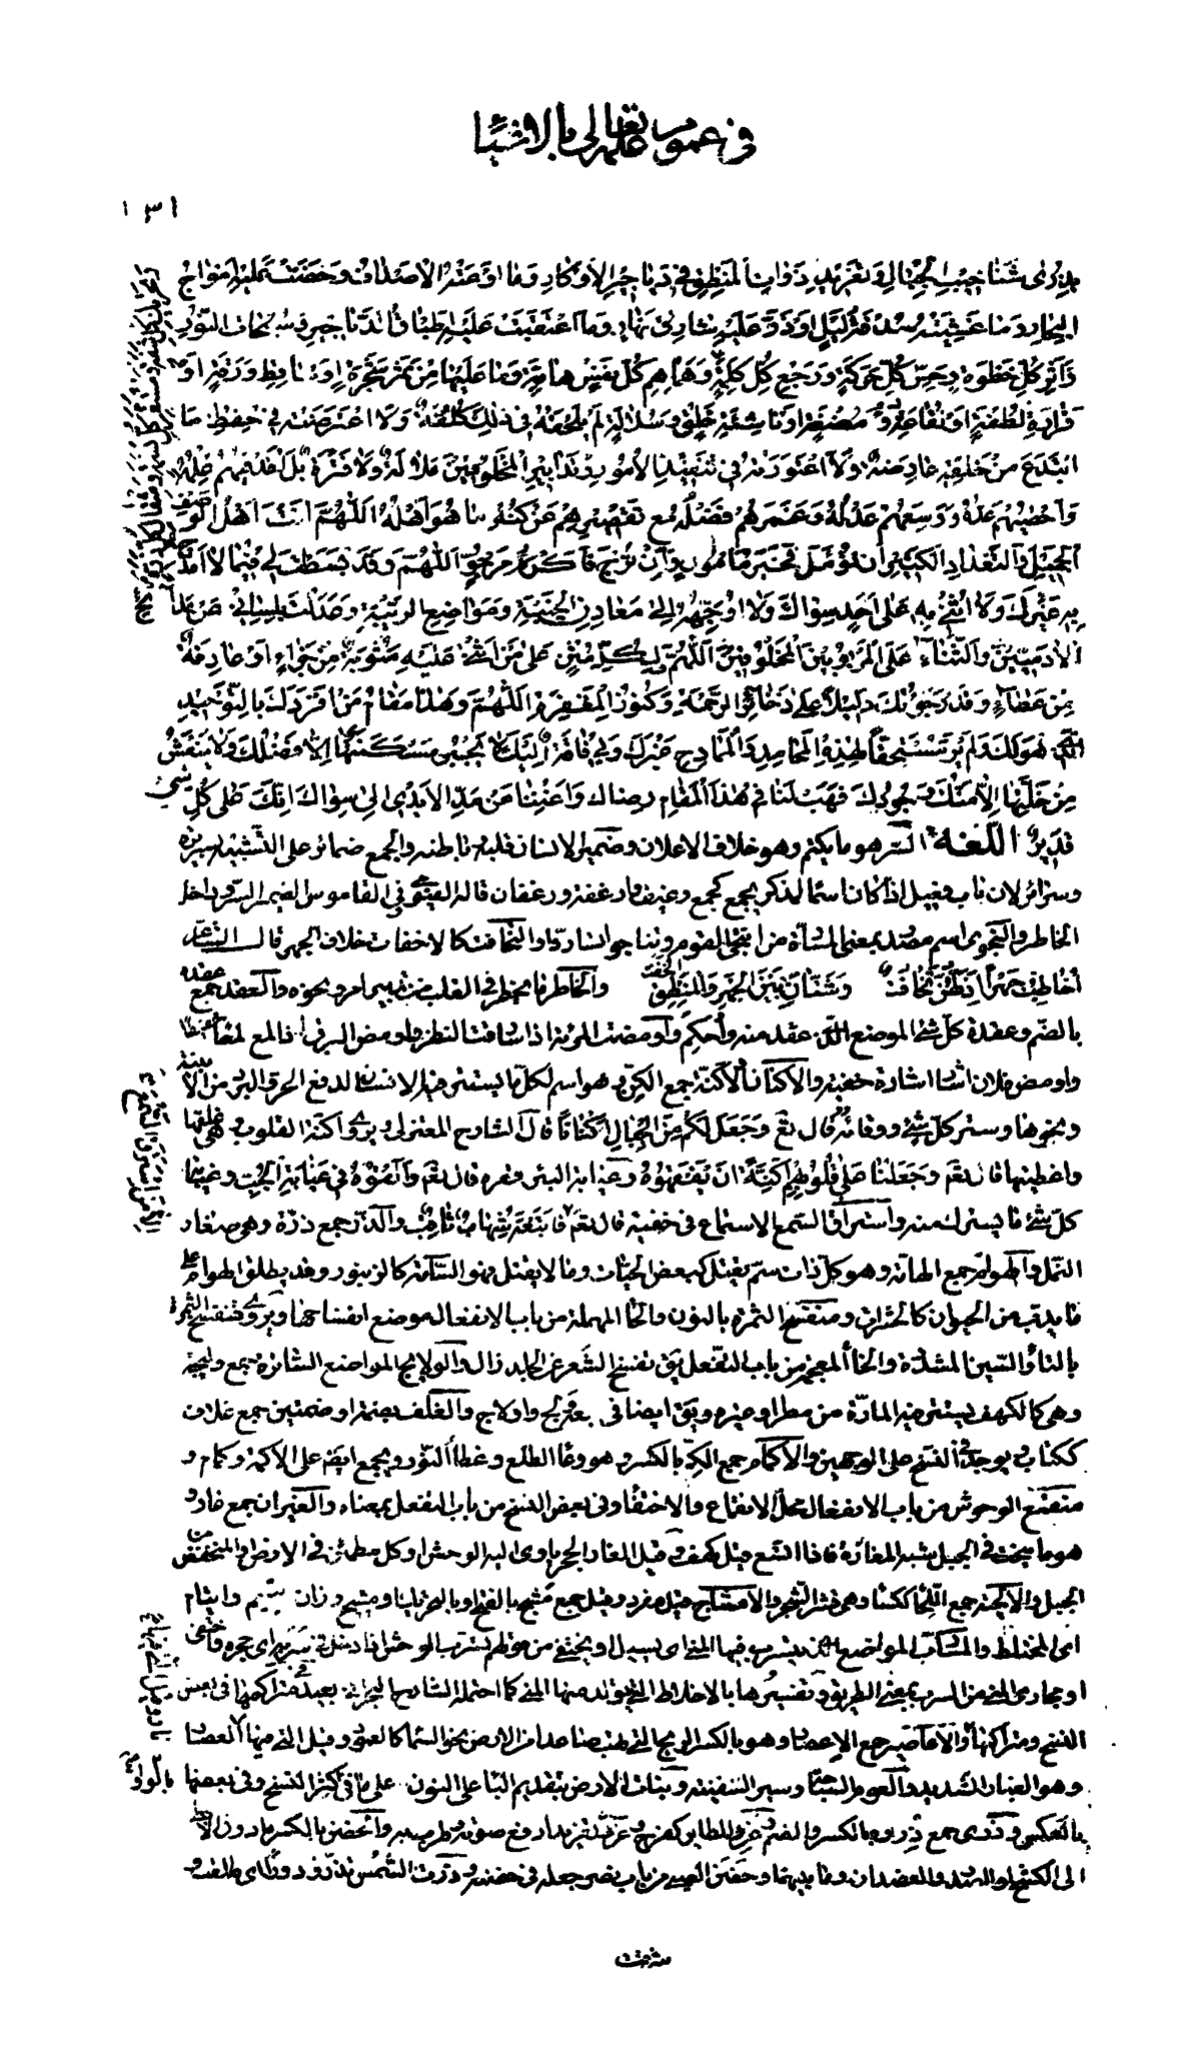 في عموم علمه تعالى بالاشيا
١٣١
بذرى شناخيب الجبال وتغريد ذوات المنطق في دياجير الأوكار وما اوعته الاصداف وحضنت عليه امواج
البحار وما غشيته سدفة ليل او ذر عليه شارق نهار وما اعتقبت عليه اطباق الدياجير وسبحات النور
واثر كل خطوة وحس كل حركة ورجع كل كلمة وهماهم كل نفس هامة وما عليها من ثمر شجرة او ساقط ورقة او
قرارة نطفة او نقاعة دم ومضغة او ناشئة خلق وسلالة لم يلحقه في ذلك كلفة ولا اعترضته في حفظ ما
ابتدع من خلقه عارضة ولا اعتورته في تنفيذ الامور وتدابير المخلوقين ملالة ولا فترة بل نفذهم علمه
واحصيهم عده ووسعهم عدله وغمرهم فضله مع تقصيرهم عن كنه ما هو اهله اللهم انت اهل الوصف
الجميل والتعداد الكثير ان تؤمل فخير مامول وان ترج فاكرم مرجو اللهم وقد بسطت لي فيما لا امدح
به غيرك ولا اثني به على احد سواك ولا اوجهه الى معادن الخيبة ومواضع الريبة وعدلت بلساني عن مدائح
الآدميين والثناء على المربوبين المخلوقين اللهم ولكل مثن على من اثنى عليه مثوبة من جزاء او عارفة
من عطاء وقد رجوتك دليلا على ذخائر الرحمة وكنوز المغفرة اللهم وهذا مقام من افردك بالتوحيد
الذي هو لك ولم ير مستحقا لهذه المحامد والممادح غيرك وبي فاقة اليك لا يجبر مسكنتها الا فضلك ولا ينعش
من خلتها الا منك وجودك فهب لنا في هذا المقام رضاك واغننا عن مد الايدى الى سواك انك على كل شيء
قدير اللغة السر هو ما يكتم وهو خلاف الاعلان وضمير الانسان قلبه وباطنه والجمع ضمائر على التشبيه بسريرة
وسرائر لان باب فعيل اذا كان اسما لمذكر يجمع كجمع رغيف وارغفة ورغفان قاله الفيومي وفي القاموس الضمير السر وداخل
الخاطر والنجوى اسم مصدر بمعنى المسارة من انتجى القوم وتناجوا تساروا والتخافت كالاخفات خلاف الجهر قال الشاعر
أخاطب جهرا اذ لهن تخافت وشتان بين الجهر والمنطق الخفت والخاطر ما يخطر في القلب من تدبير امر ونحوه والعقد جمع عقدة
بالضم وعقدة كل شيء الموضع الذي عقد منه واحكم واومضت المرئة اذا سارقت النظر واومض البرق اذا لمع لمعا خفيفا
واومض فلان اشار اشارة خفية والاكنان والاكنة جمع الكن وهو اسم لكل ما يستتر فيه الانسان لدفع الحر والبرد من الابنية
ونحوها وستر كل شيء ووقائه قال تعالى وجعل لكم من الجبال اكنانا قال الشارح المعتزلي ويروى اكنة القلوب وهي غلفها
واغطيتها قال تعالى وجعلنا على قلوبهم اكنة ان يفقهوه وغيابة البئر قعره قال تعالى والقوه في غيابة الجب وغيب
كل شيء ما يسترك منه واستراق السمع الاستماع في خفية قال تعالى فاتبعه شهاب ثاقب والذر جمع ذرة وهي صغار
النمل والهوام جمع الهامة وهو كل ذات سم يقتل كبعض الحيات وما لا يقتل فهو السامة كالزنبور وقد يطلق الهوام على
ما يدب من الحيوان كالحشرات ومنفسح الثمرة بالنون والحاء المهملة من باب الانفعال موضع انفساحها ويروى متفسخ الثمرة
بالتاء والسين المشددة والخاء المعجمة من باب التفعل يق تفسخ الشعر عن الجلد زال والولايج المواضع الساترة جمع وليجة
وهي كالكهف يستتر فيه المارة من مطر او غيره ويق ايضا في جمعه ولج واولاج والغلف بضمة او ضمتين جمع غلاف
ككتاب ويوجد في النسخ على الوجهين والاكمام جمع الكم بالكسر وهو وعاء الطلع وغطاء النور ويجمع ايضا على الاكمة وكمام و
منقمع الوحوش من باب الانفعال محل الانقماع والاختفاء وفي بعض النسخ من باب التفعل بمعناه والغيران جمع غار و
هو ما ينحت في الجبل شبه المغارة فاذا اتسع قيل كهف وقيل الغار الجحر ياوى اليه الوحش او كل مطمئن في الارض او المنخفض من
الجبل والالحية جمع اللحاء ككساء وهي قشر الشجر والامشاج قيل مفرد وقيل جمع مشج بالفتح او بالتحريك او مشيج وزان يتيم وايتام
اى المختلط والمسارب المواضع التي يتسرب فيها المني اى يسيل او يختفي من قولهم تسرب الوحش اذا دخل في سربه اى جحره واختفى
او مجارى المني من السرب بمعنى الطريق وتفسيرها بالاخلاط التي يتولد منها المني كما احتمله الشارح البحراني بعيد ومتراكمها في بعض
النسخ ومتراكبها والاعاصير جمع الاعصار وهو بالكسر الريح التي تهب صاعدا من الارض نحو السماء كالعمود وقيل التي فيها العصار
وهو الغبار الشديد والعوم السباحة وسير السفينة وبنات الارض بتقديم الباء على النون على ما في اكثر النسخ وفي بعضها
بالعكس وذرى جمع ذروة بالكسر والضم وغرد الطاير كفرح وغرد تغريدا رفع صوته وطرب به والحضن بالكسر ما دون الابط
الى الكشح او الصدر والعضدان وما بينهما وحضن الصبي من باب نصر جعله في حضنه وذرت الشمس تذر ذرورا اى طلعت و
شرقت